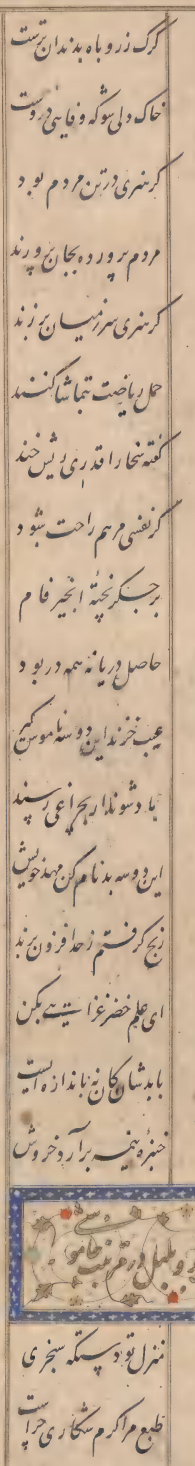 گرگ ز روباه بدندان ترست
خاک دلی شو که وفایی دروست
گر هنری در تن مردم بود
مردم پرورده بجان پرورند
گر هنری سر ز میان بر زند
حمل ریاضت بتماشا کنند
گفته سخا را قدری ریش خند
گر نفسی مرهم راحت شود
بر جگر پخته انجیر فام
حاصل دریا نه همه در بود
عیب خرند این دو سه ناموس گیر
باد شوند ار بچراغی رسند
این دو سه بد نام کن مهد خویش
رنج گرفتم ز حد افزون برند
ای علم خضر غزایی بکن
با بدشان کان نه باندازه ایست
خنبره نیمه بر آرد خروش
بلبل در مرتبت خاموشی
منزل تو دستگه سنجری
طبع مرا کرم شکاری خراست